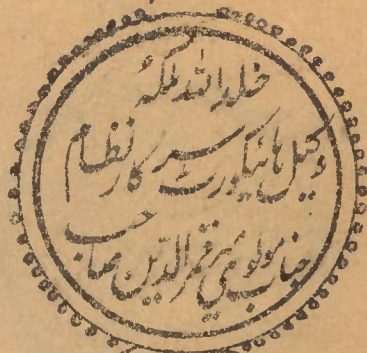 خلد اللہ ملکہٗ
وکیل ہائیکورٹ سرکار نظام
جناب مولوی میر قمر الدین صاحب